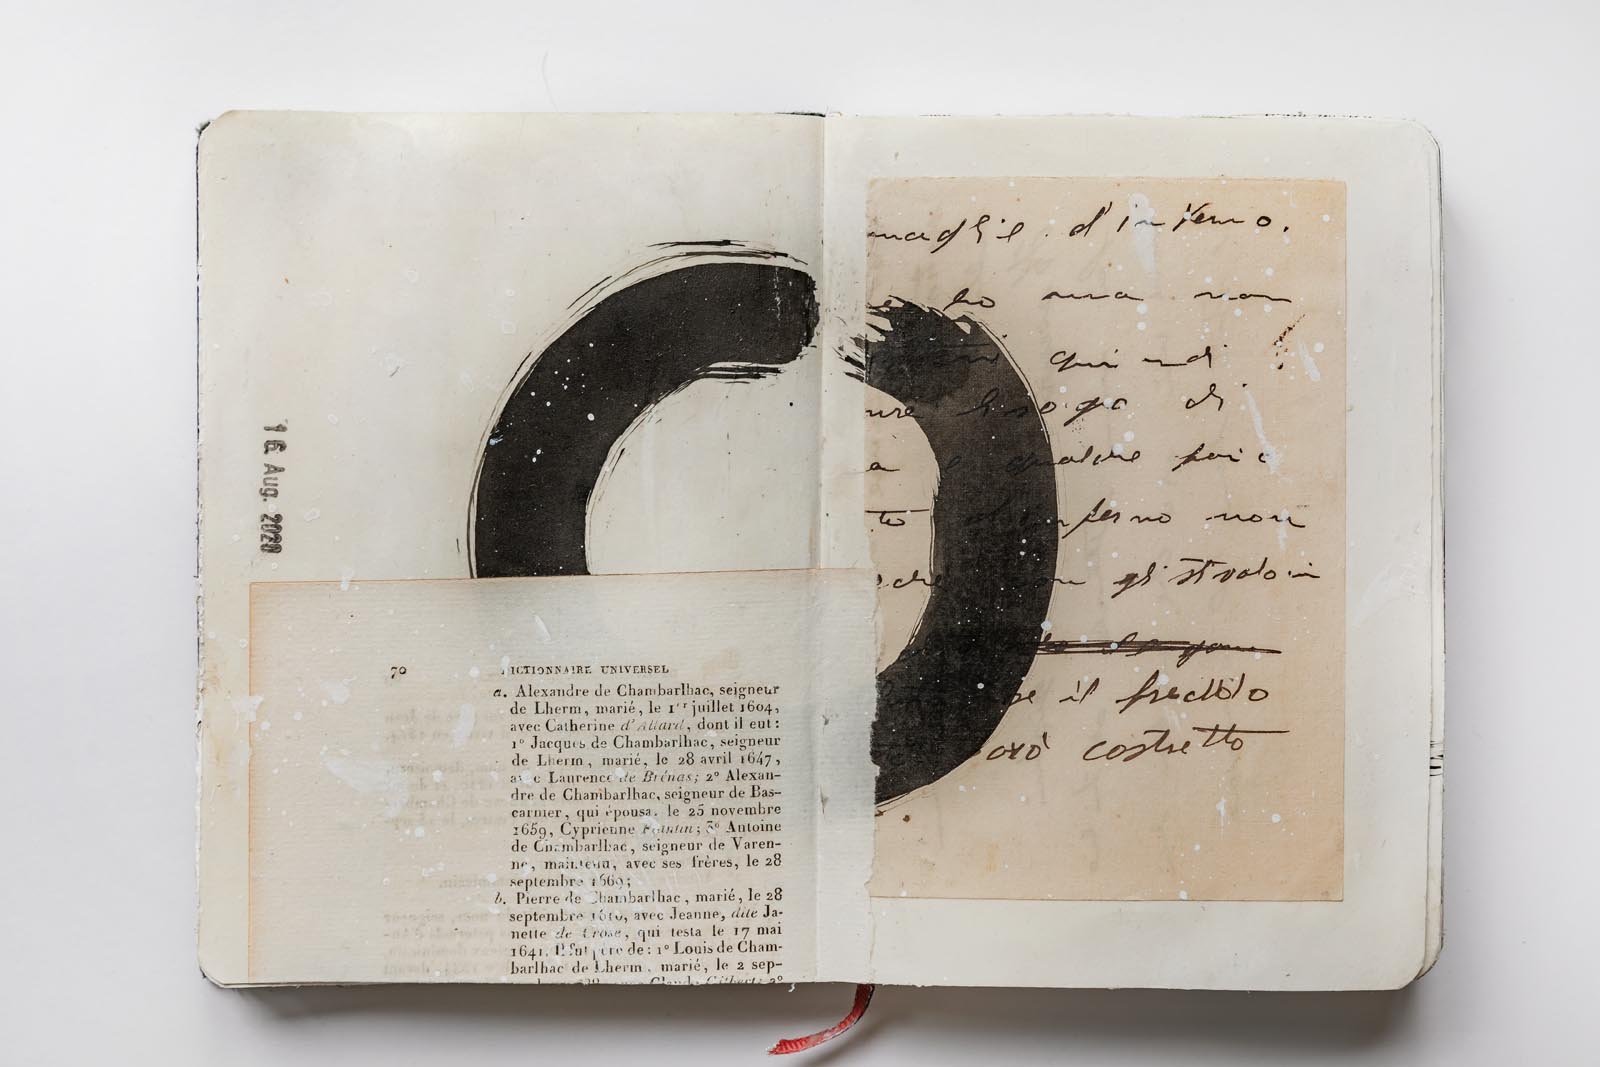 16 Aug. 2020
70 DICTIONNAIRE UNIVERSEL
a. Alexandre de Chambarlhac, seigneur
de Lherm, marié, le 1er juillet 1604,
avec Catherine d'Allard, dont il eut:
1° Jacques de Chambarlhac, seigneur
de Lherm, marié, le 28 avril 1647,
avec Laurence de Brénas; 2° Alexan-
dre de Chambarlhac, seigneur de Bas-
carnier, qui épousa, le 25 novembre
1659, Cyprienne ; 3° Antoine
de Chambarlhac, seigneur de Varen-
ne, maintenu, avec ses frères, le 28
septembre 1669;
b. Pierre de Chambarlhac, marié, le 28
septembre 1610, avec Jeanne, dite Ja-
nette de Crose, qui testa le 17 mai
1641. Il fut père de: 1° Louis de Cham-
barlhac de Lherm, marié, le 2 sep-
maglie d'inverno.
ho una non
quindi
bisogno di
e qualche paio
d'inverno non
gli stivaloin
il freddo
costretto